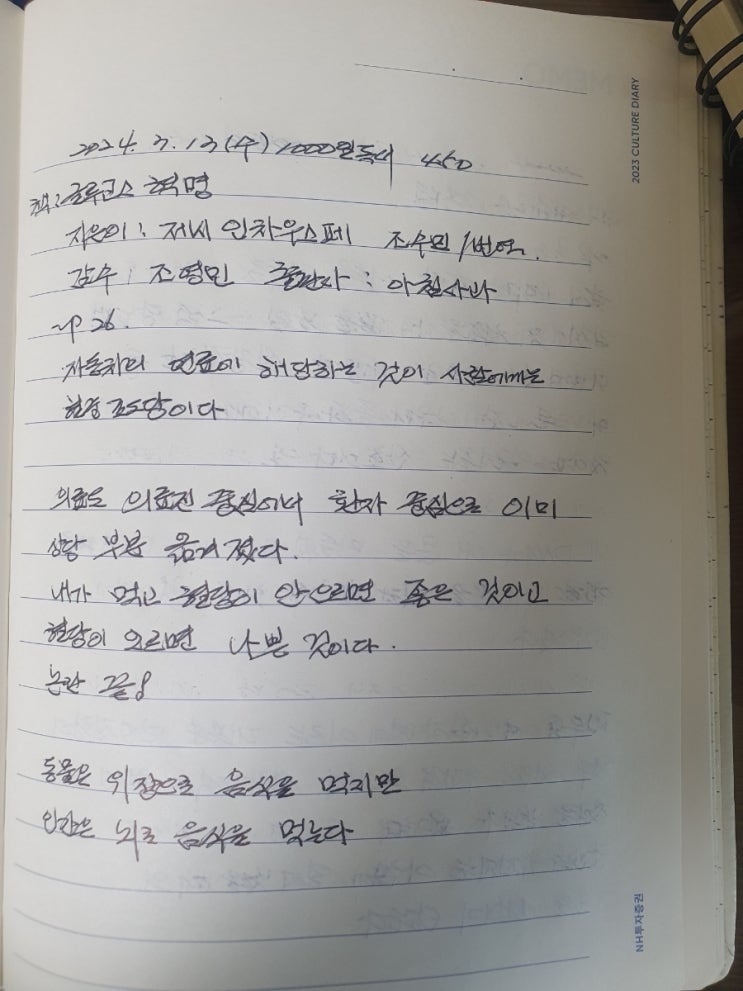 2024. 3. 13 (수) 1000일독서 450
제목: 글루코스 혁명
지은이: 제시 인차우스페 조수빈/번역.
감수: 조영민 출판사: 아침사과
~P 26.
자동차의 연료에 해당하는 것이 사람에게는
혈중 포도당이다
의료도 의료진 중심에서 환자 중심으로 이미
상당 부분 옮겨 졌다.
내가 먹고 혈당이 안 오르면 좋은 것이고
혈당이 오르면 나쁜 것이다.
논란 끝!
동물은 위장으로 음식을 먹지만
인간은 뇌로 음식을 먹는다
2023 CULTURE DIARY
NH투자증권